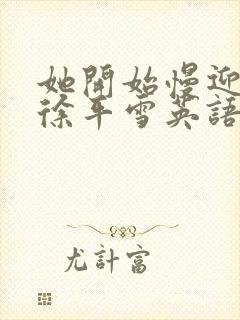 她開始慢迎
徐平雪英語
尤計富